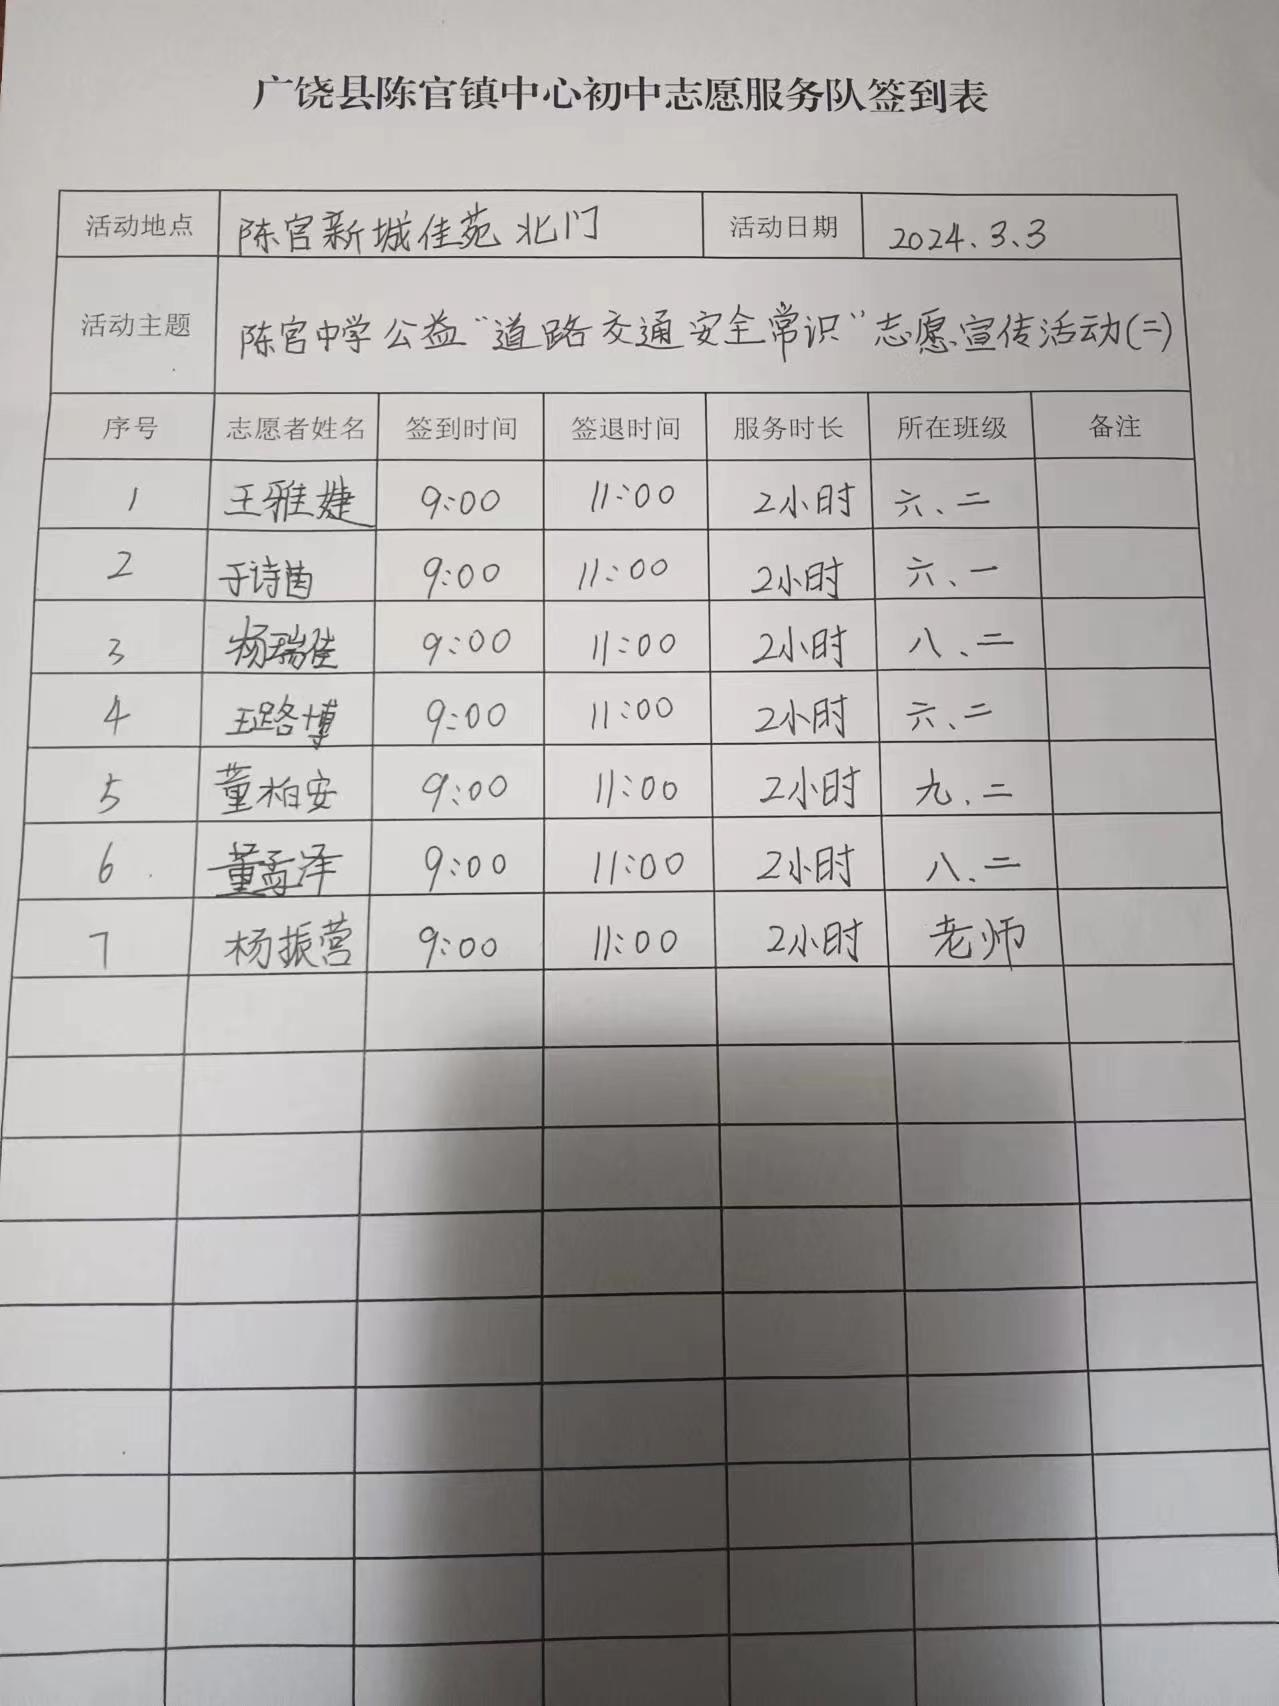 广饶县陈官镇中心初中志愿服务队签到表
活动地点 陈官新城佳苑北门 活动日期 2024.3.3
活动主题 陈官中学公益“道路交通安全常识”志愿宣传活动(二)
序号 志愿者姓名 签到时间 签退时间 服务时长 所在班级 备注
1 王雅婕 9:00 11:00 2小时 六、二
2 于诗茵 9:00 11:00 2小时 六、一
3 杨瑞佳 9:00 11:00 2小时 八、二
4 王路博 9:00 11:00 2小时 六、二
5 董柏安 9:00 11:00 2小时 九、二
6 董孟泽 9:00 11:00 2小时 八、二
7 杨振营 9:00 11:00 2小时 老师